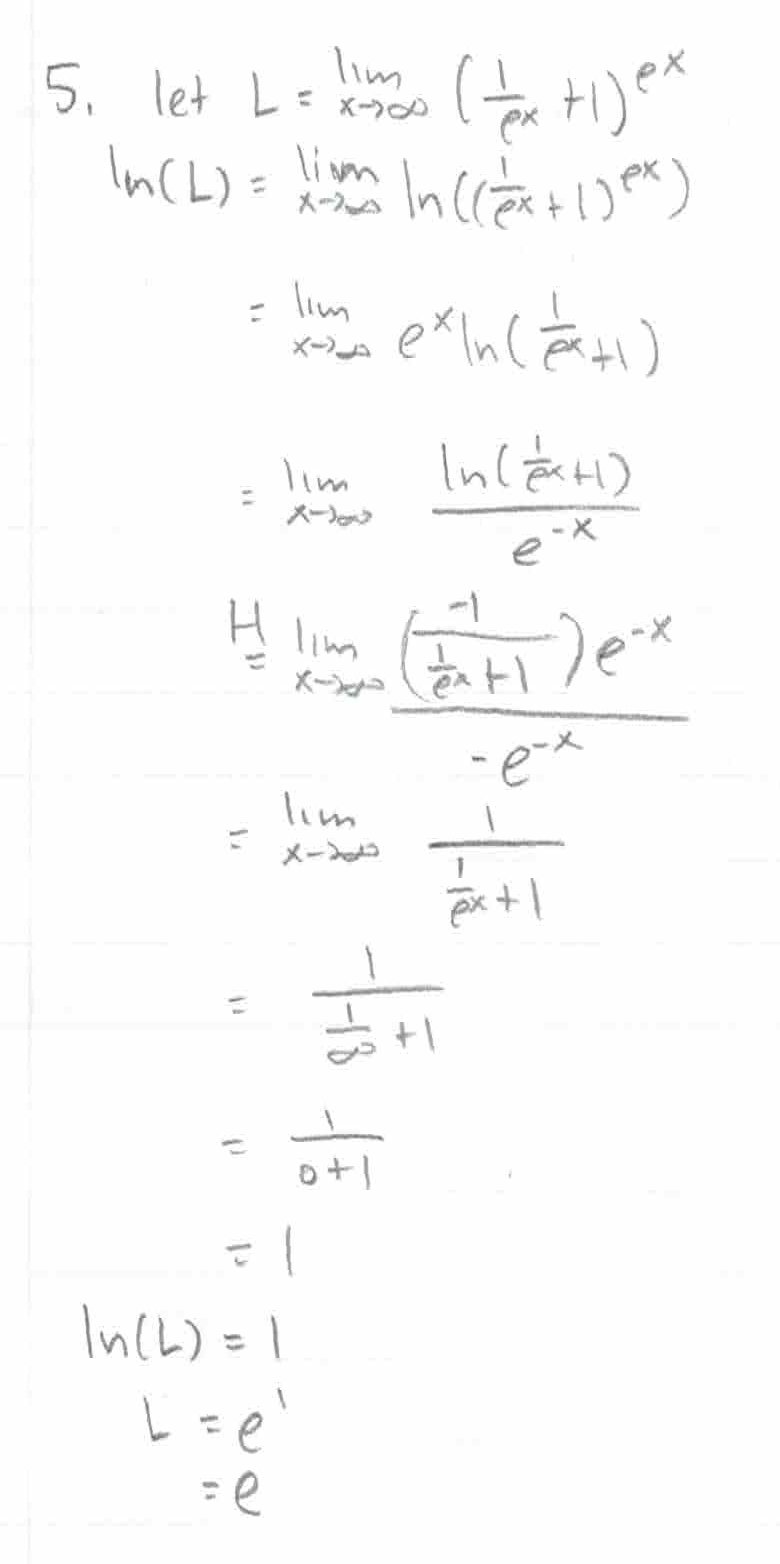 5. let L = lim x→∞ (1/e^x + 1)^e^x
ln(L) = lim x→∞ ln((1/e^x + 1)^e^x)
= lim x→∞ e^x ln(1/e^x + 1)
= lim x→∞ ln(1/e^x + 1) / e^-x
H= lim x→∞ (-1/(1/e^x + 1)) e^-x / -e^-x
= lim x→∞ 1/(1/e^x + 1)
= 1/(1/∞ + 1)
= 1/(0+1)
= 1
ln(L) = 1
L = e^1
= e